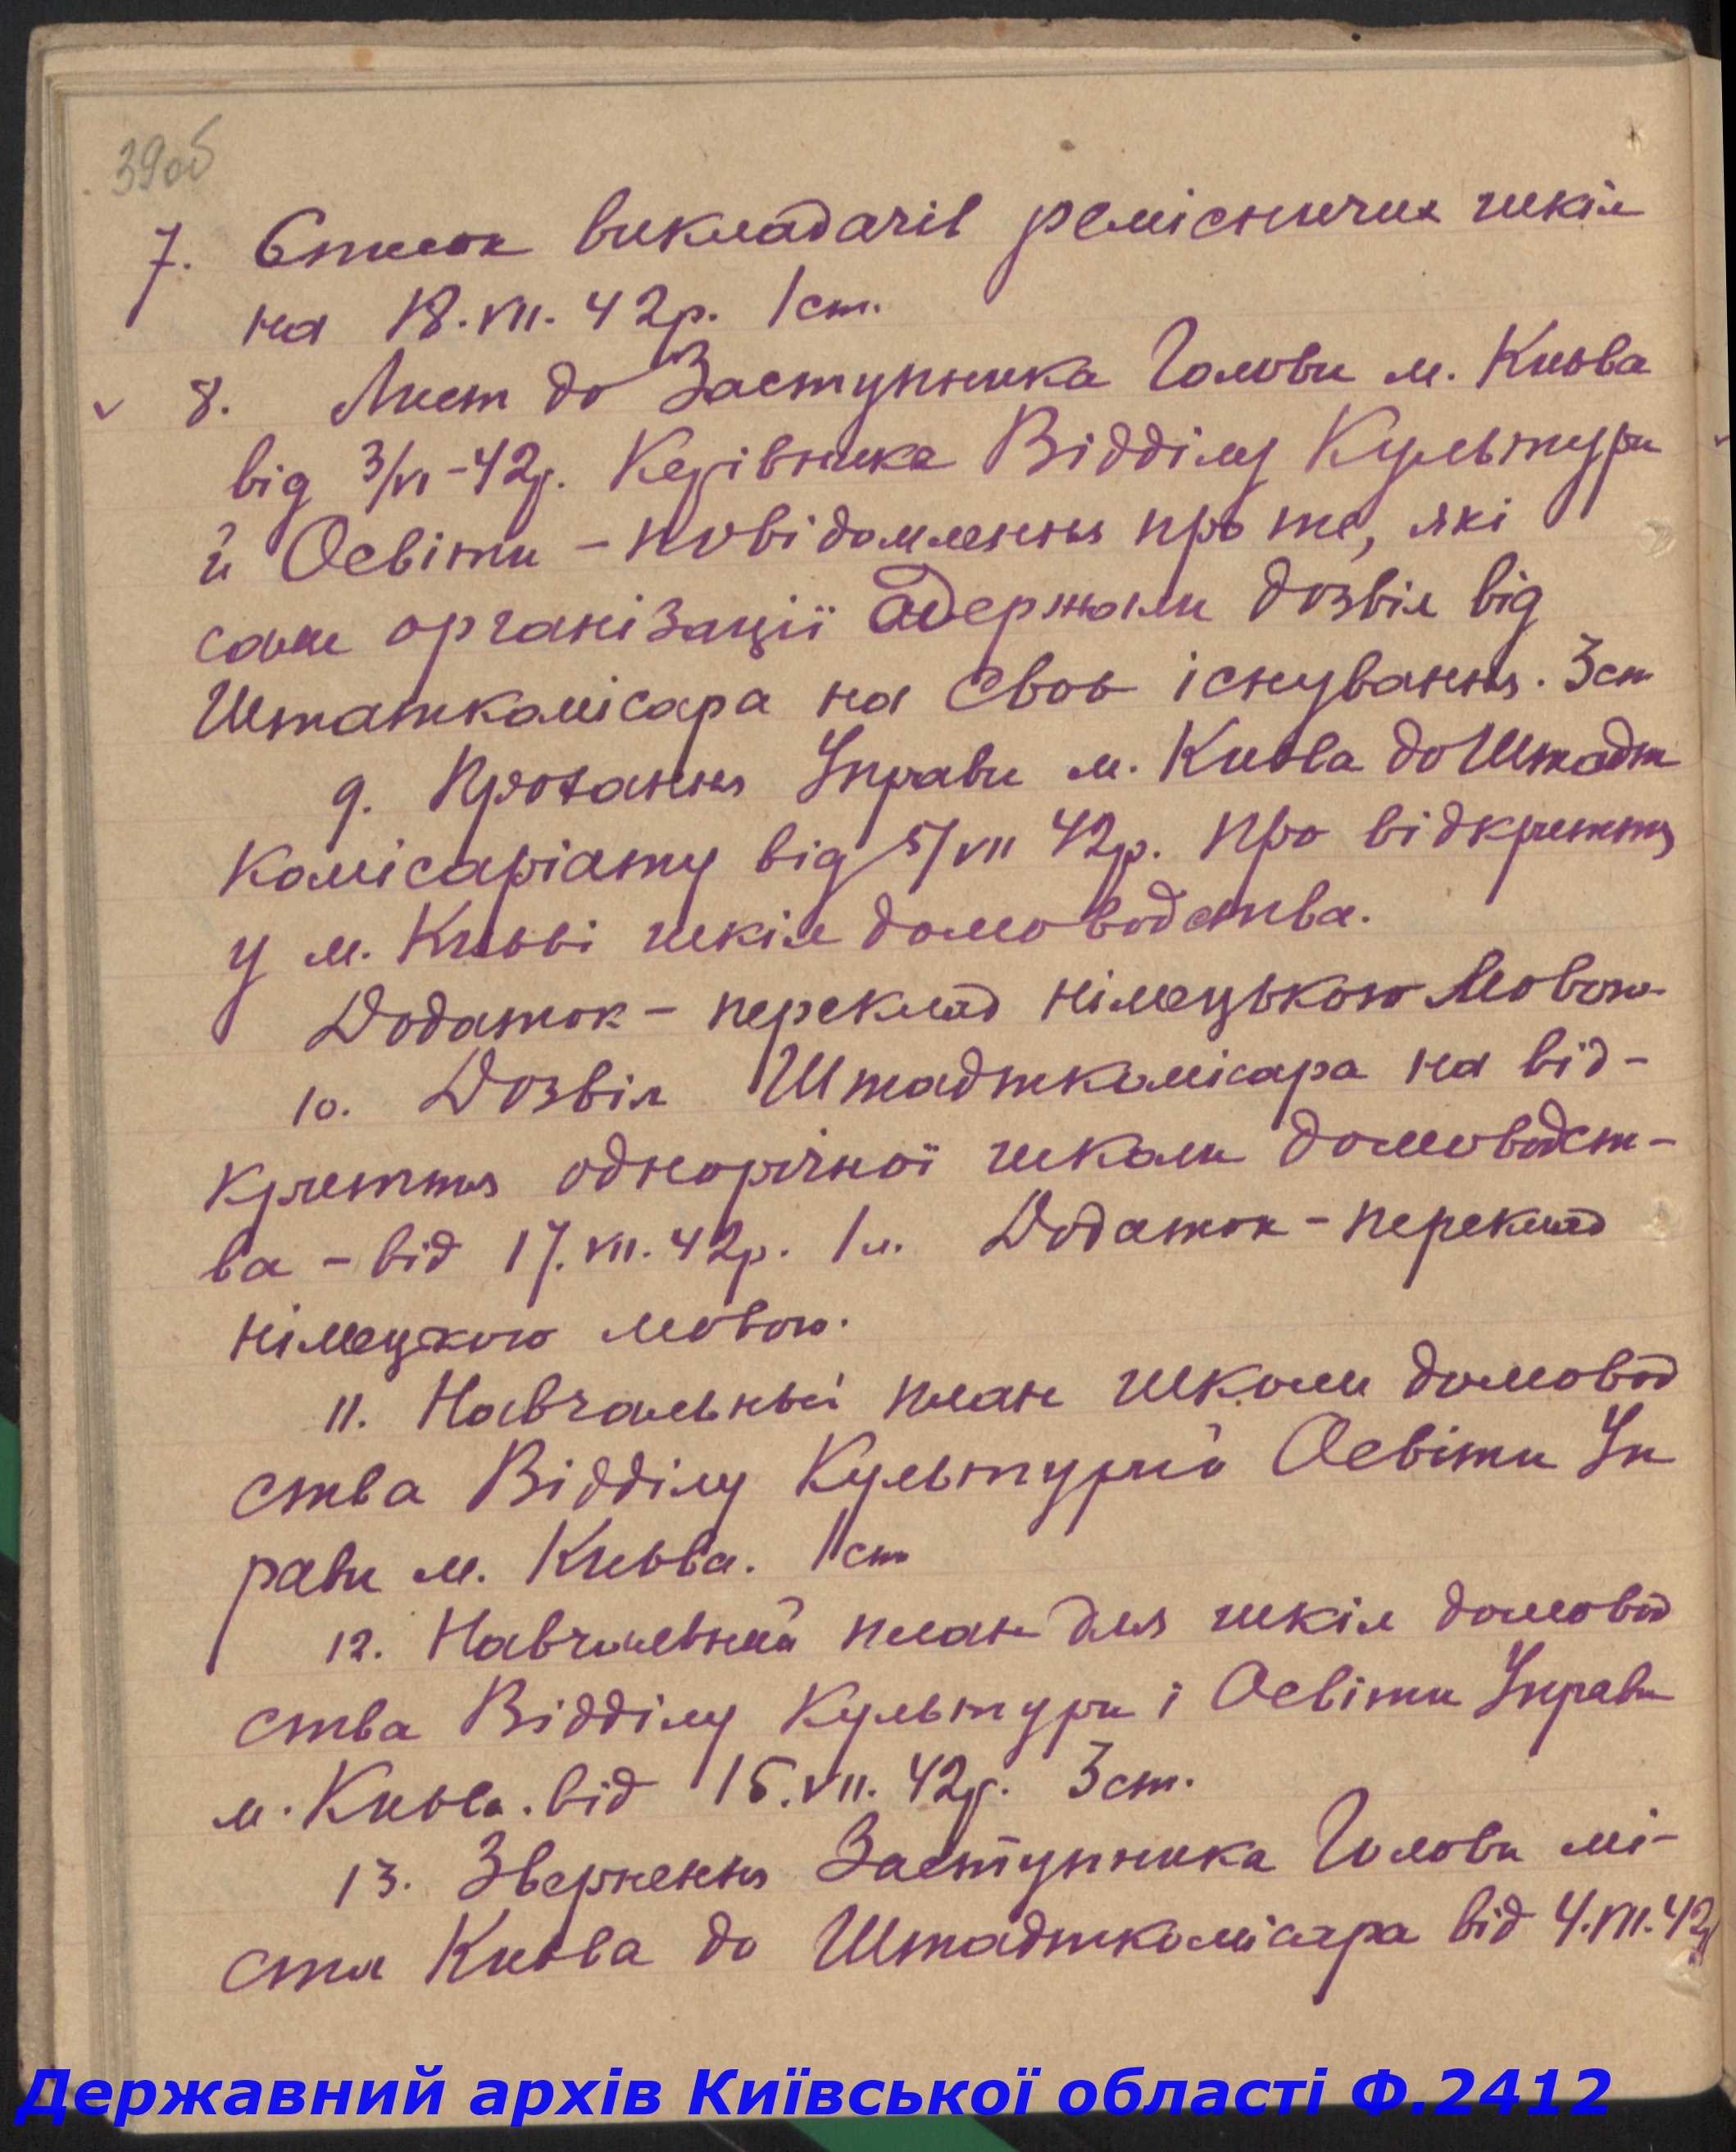 39об
7. Список викладачів ремісничих шкіл
на 18.VII.42р. 1ст.
8. Лист до Заступника Голови м. Києва
від 3/VI-42р. Керівника Відділу Культури
й Освіти - повідомлення про те, які
саме організації одержали дозвіл від
Штаткомісара на своє існування. 3ст
9. Прохання Управи м. Києва до Штадт
комісаріату від 5/VII 42р. про відкриття
у м. Києві шкіл домоводства.
Додаток - переклад німецькою мовою
10. Дозвіл Штадткомісара на від-
криття однорічної школи домоводст-
ва - від 17.VII.42р. 1 Додаток - переклад
німецкою мовою.
11. Навчальный план школи домовод
ства Відділу Культури й Освіти Уп
рави м. Києва. 1ст
12. Навчальний план для шкіл домовод
ства Відділу Культури і Освіти Управи
м. Києва. від 15.VII.42р. 3ст.
13. Звернення Заступника Голови мі-
ста Києва до Штадткомісара від 4.VII.42р
Державний архів Київської області Ф.2412